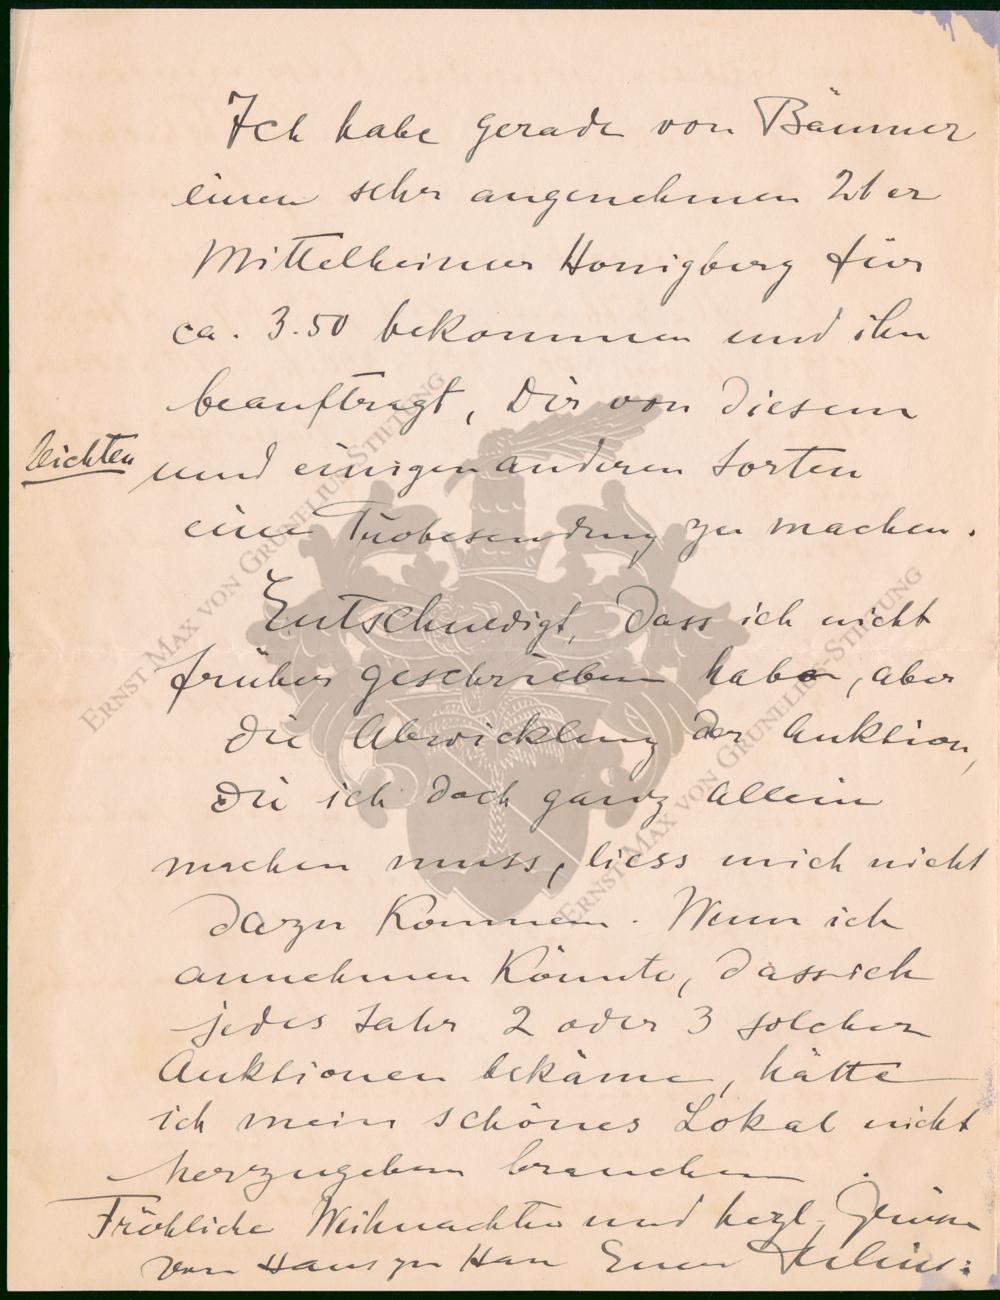 Ich habe gerade von Bäumer
einen sehr angenehmen 26er
Mittelheimer Honigberg für
ca. 3.50 bekommen und ihn
beauftragt, Dir von diesem
leichten
und einigen anderen Sorten
eine Probesendung zu machen.
Entschuldigt, dass ich nicht
früher geschrieben habe, aber
die Abwicklung der Auktion,
die ich doch ganz allein
machen muss, liess mich nicht
dazu kommen. Wenn ich
annehmen könnte, dass ich
jedes Jahr 2 oder 3 solcher
Auktionen bekäme, hätte
ich mein schönes Lokal nicht
herzugeben brauchen
Fröhliche Weihnachten und herzl. Grüsse
von Haus zu Haus Euer Julius.
ERNST MAX VON GRUNELIUS-STIFTUNG
ERNST MAX VON GRUNELIUS-STIFTUNG